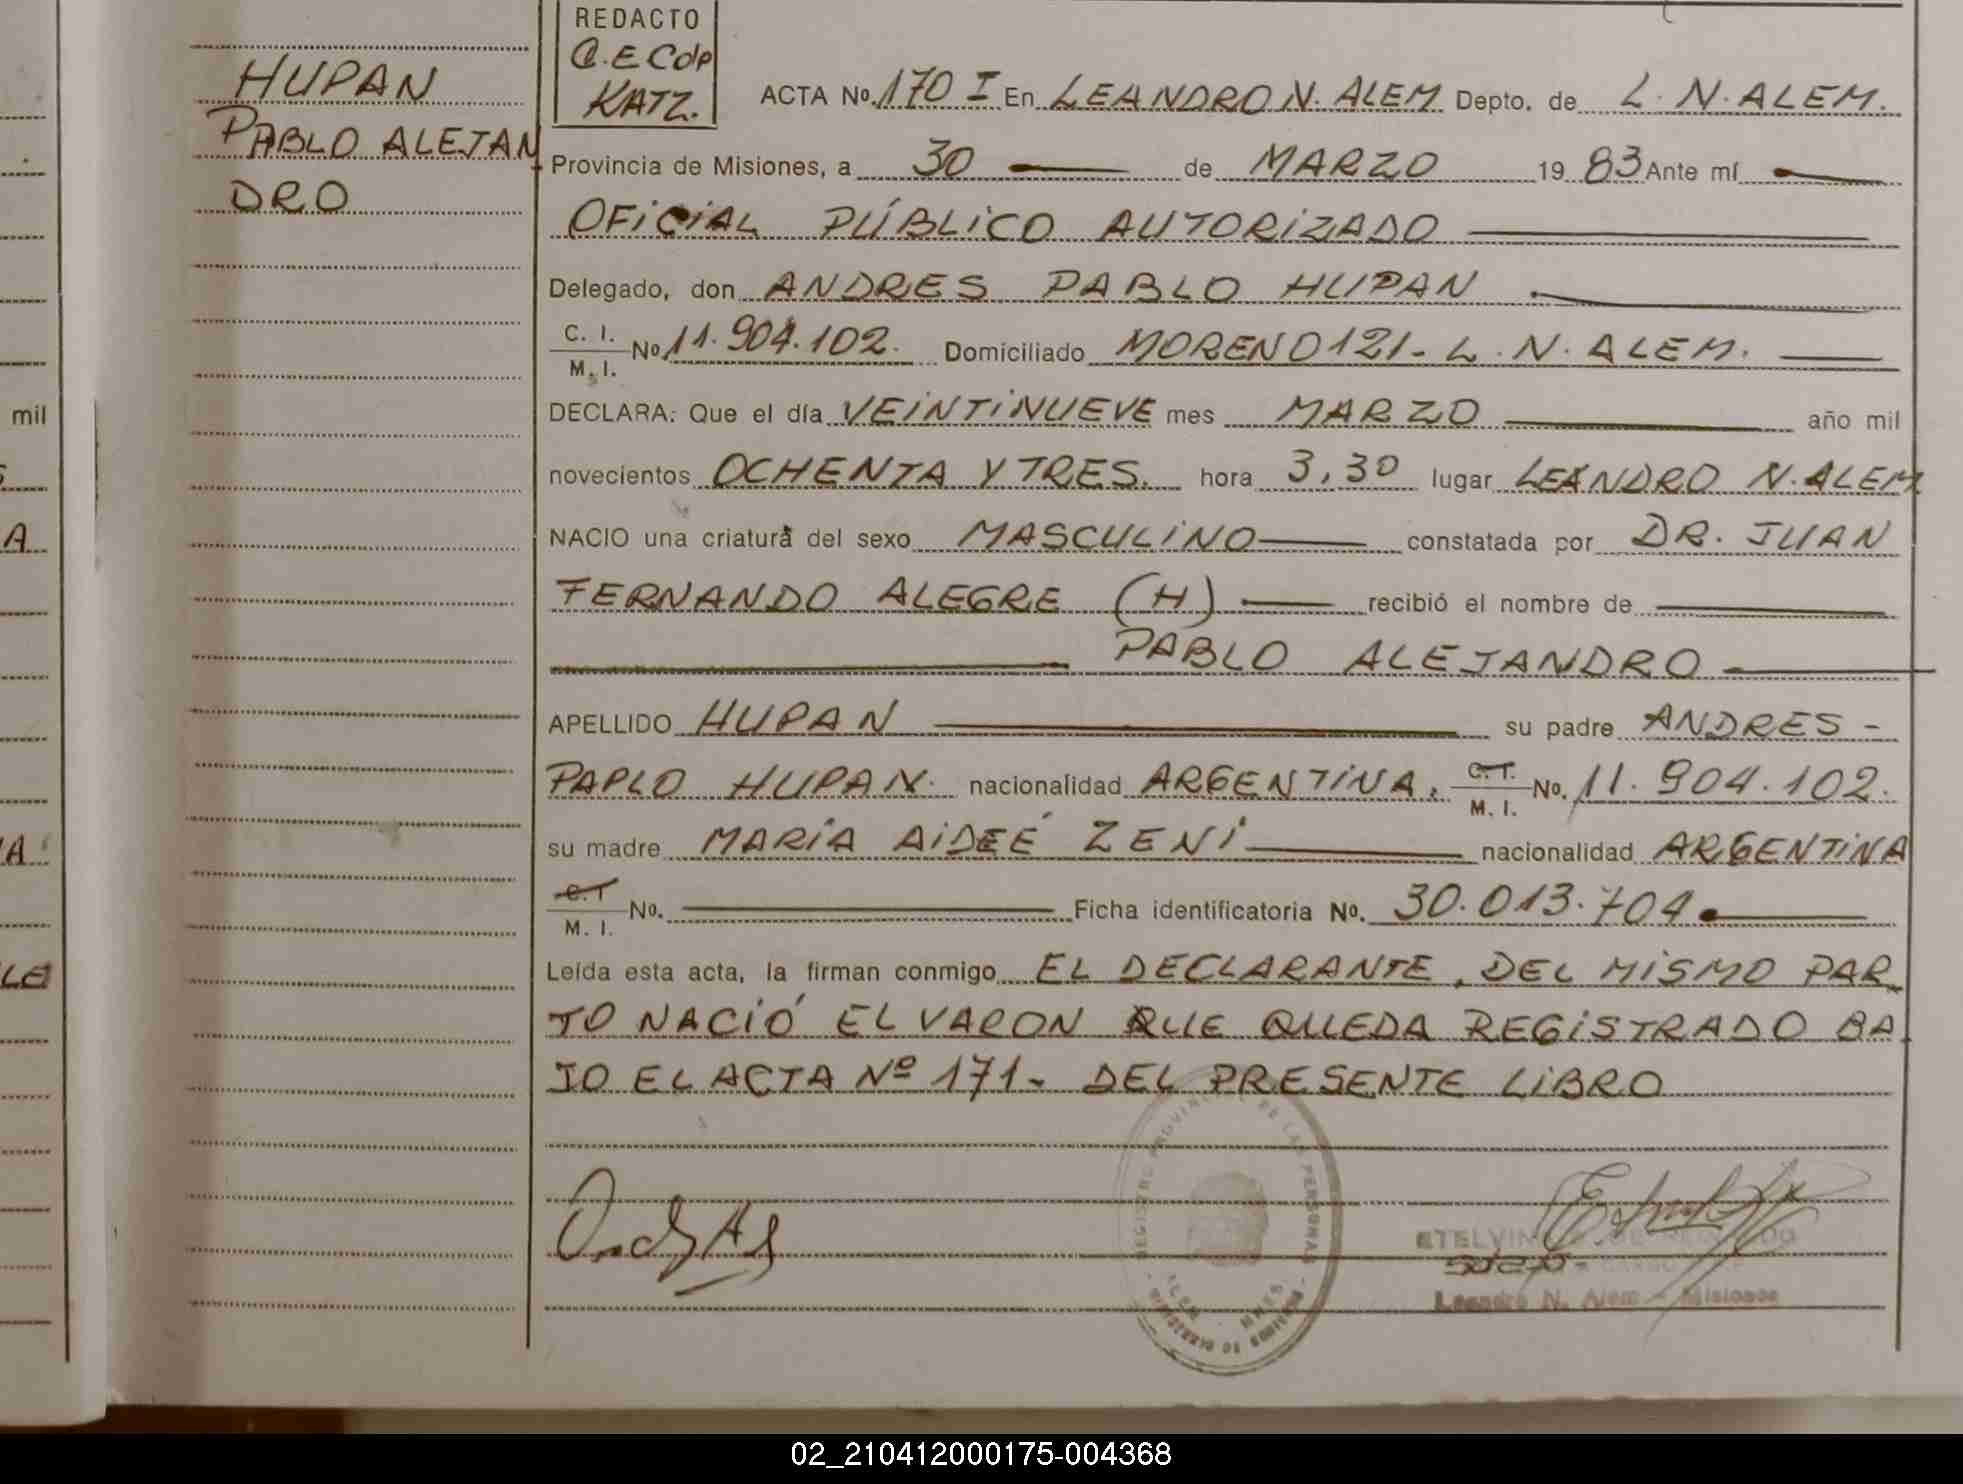 HUPAN
PABLO ALEJAN
DRO
REDACTO
C.E Cdp
KATZ.
ACTA No. 170 I En LEANDRO N. ALEM Depto. de L. N. ALEM.
Provincia de Misiones, a 30 de MARZO 19 83 Ante mí
OFICIAL PÚBLICO AUTORIZADO
Delegado, don ANDRES PABLO HUPAN
C. I. / M. I. No. 11.904.102. Domiciliado MORENO 121 - L. N. ALEM.
DECLARA: Que el día VEINTINUEVE mes MARZO año mil
novecientos OCHENTA Y TRES. hora 3,30 lugar LEANDRO N. ALEM
NACIO una criatura del sexo MASCULINO constatada por DR. JUAN
FERNANDO ALEGRE (H) recibió el nombre de
PABLO ALEJANDRO
APELLIDO HUPAN su padre ANDRES -
PAPLO HUPAN. nacionalidad ARGENTINA, C.I. / M. I. No. 11.904.102.
su madre MARÍA AIDEÉ ZENI nacionalidad ARGENTINA
C.I / M. I. No. Ficha identificatoria No. 30.013.704
Leída esta acta, la firman conmigo EL DECLARANTE, DEL MISMO PAR_
TO NACIÓ EL VARON QUE QUEDA REGISTRADO BA_
JO EL ACTA Nº 171- DEL PRESENTE LIBRO
REGISTRO PROVINCIAL DE LAS PERSONAS
ALEM MNES
Leandro N. Alem - Misiones
mil
A
LE
02_210412000175-004368